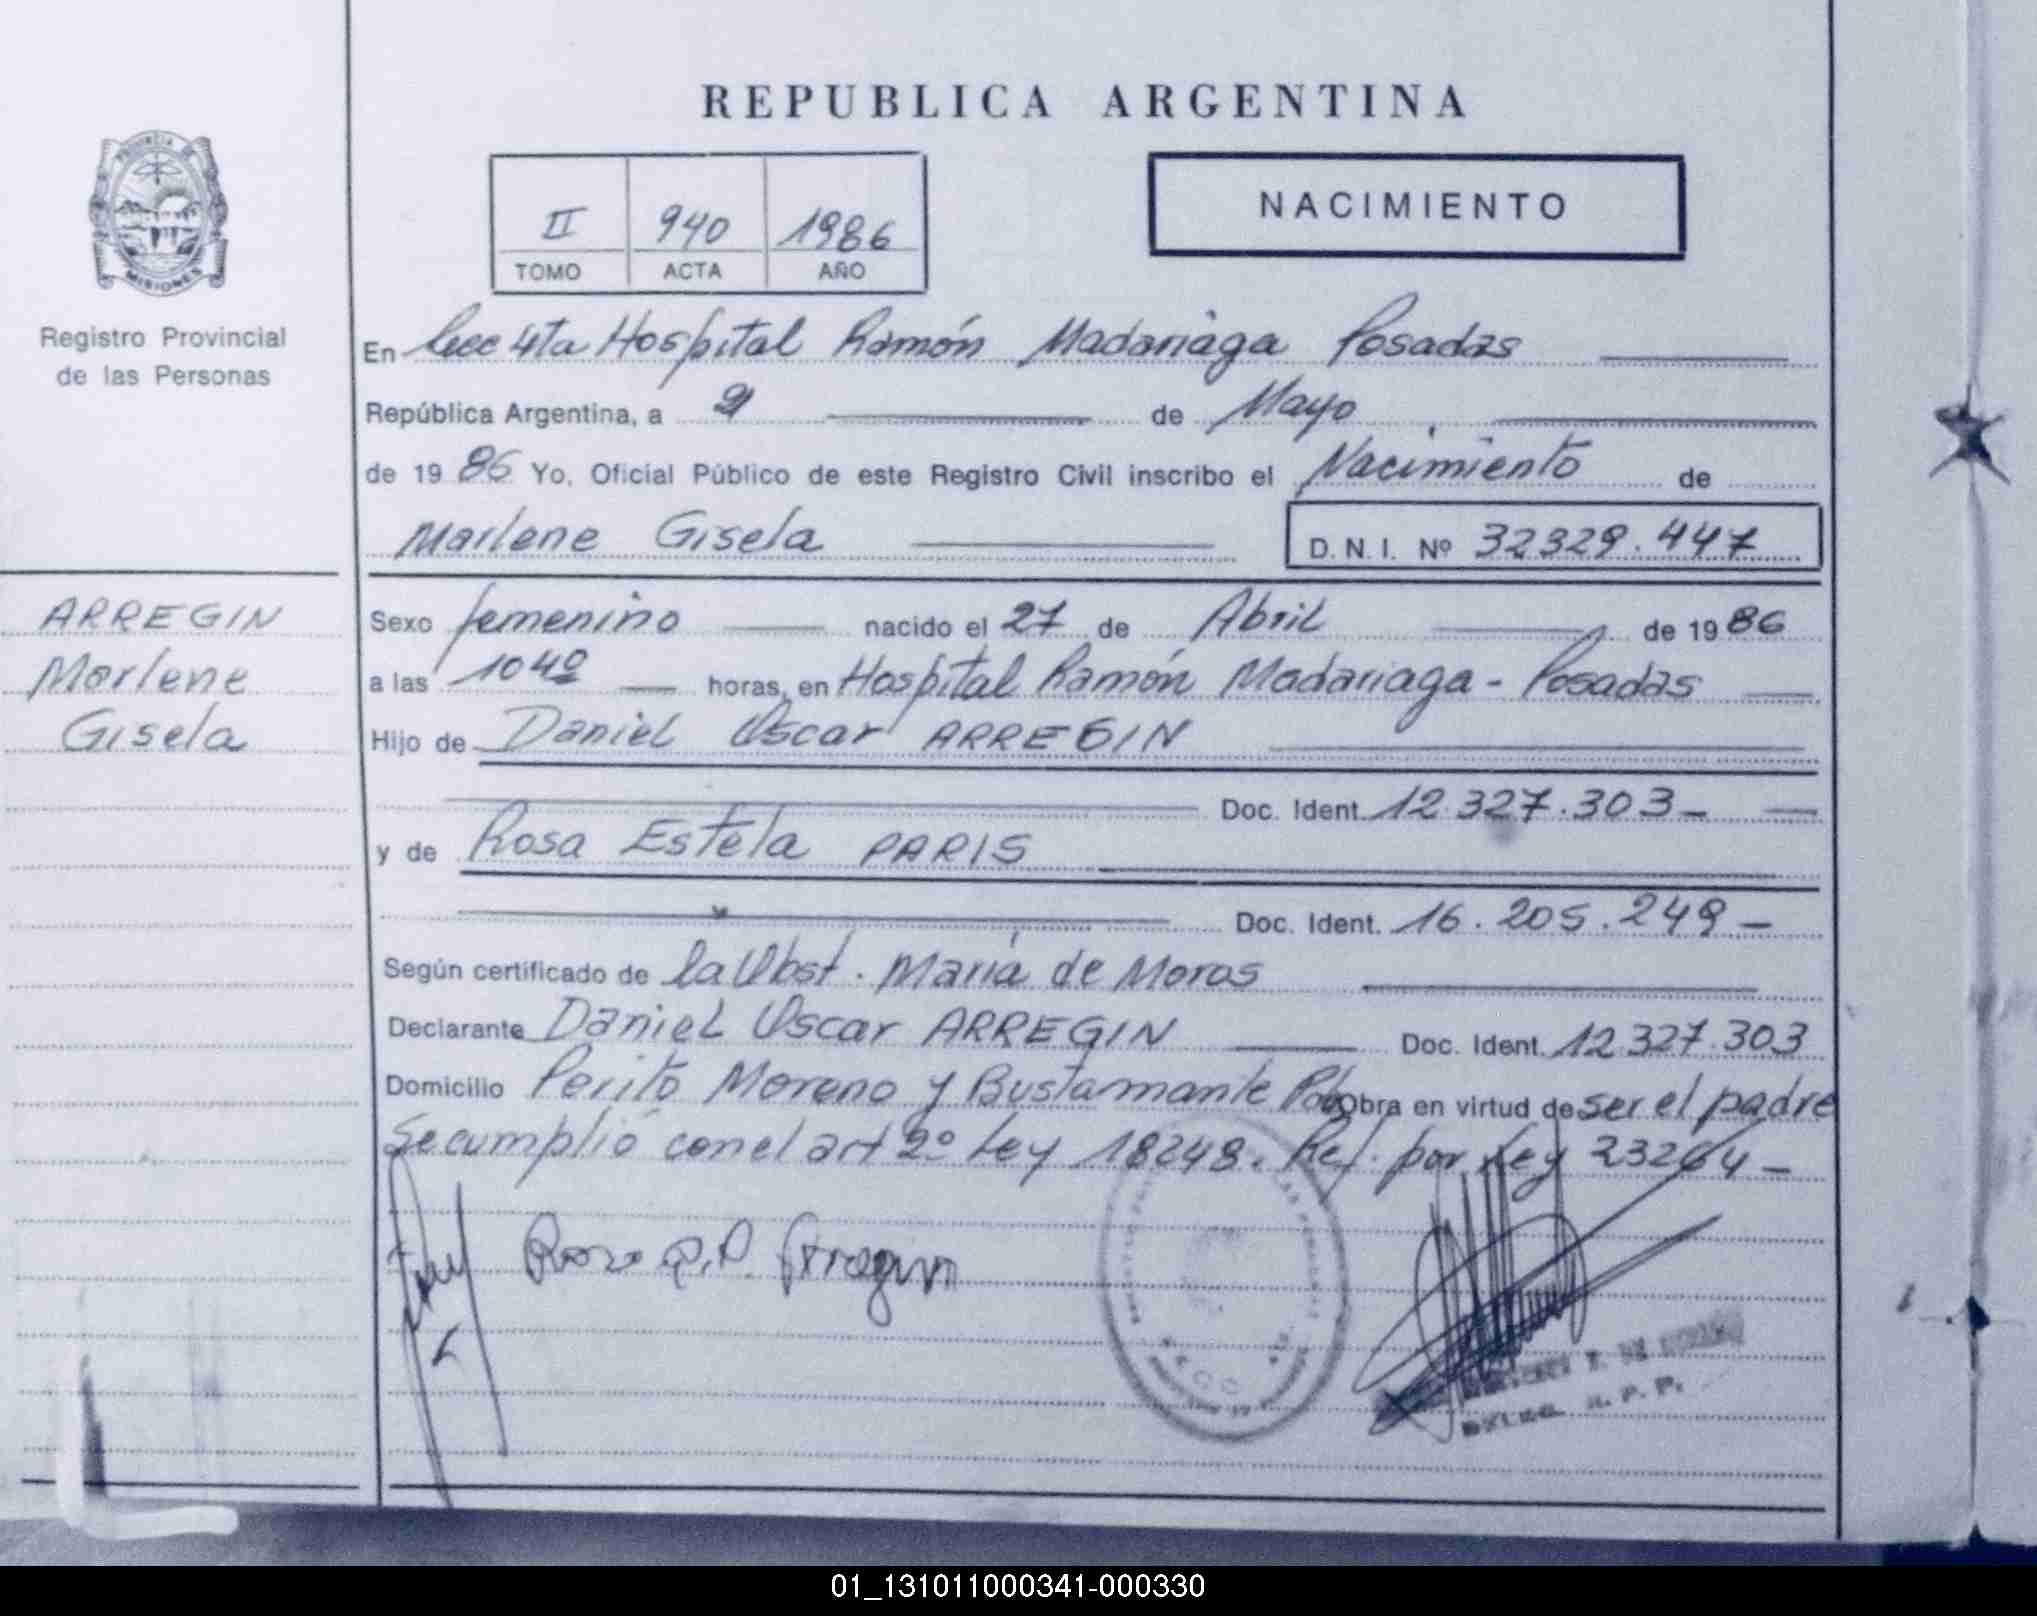 REPUBLICA ARGENTINA
PROVINCIA DE
MISIONES
Registro Provincial
de las Personas
II 940 1986
TOMO ACTA AÑO
NACIMIENTO
En Secc 4ta Hospital Ramón Madariaga Posadas
República Argentina, a de Mayo
de 1986 Yo, Oficial Público de este Registro Civil inscribo el Nacimiento de
Marlene Gisela D. N. I. Nº 32329.447
ARREGIN
Marlene
Gisela
Sexo femenino nacido el 27 de Abril de 1986
a las 1040 horas, en Hospital Ramón Madariaga - Posadas
Hijo de Daniel Oscar ARREGIN
Doc. Ident. 12.327.303-
y de Rosa Estela PARIS
Doc. Ident. 16.205.249-
Según certificado de la Obst. Maria de Moras
Declarante Daniel Oscar ARREGIN Doc. Ident. 12.327.303
Domicilio Perito Moreno y Bustamante Obra en virtud de ser el padre
Se cumplió con el art 2º Ley 18248. Ref. por Ley 23264-
Rosa E.P. Arregin
R. P. P.
01_131011000341-000330